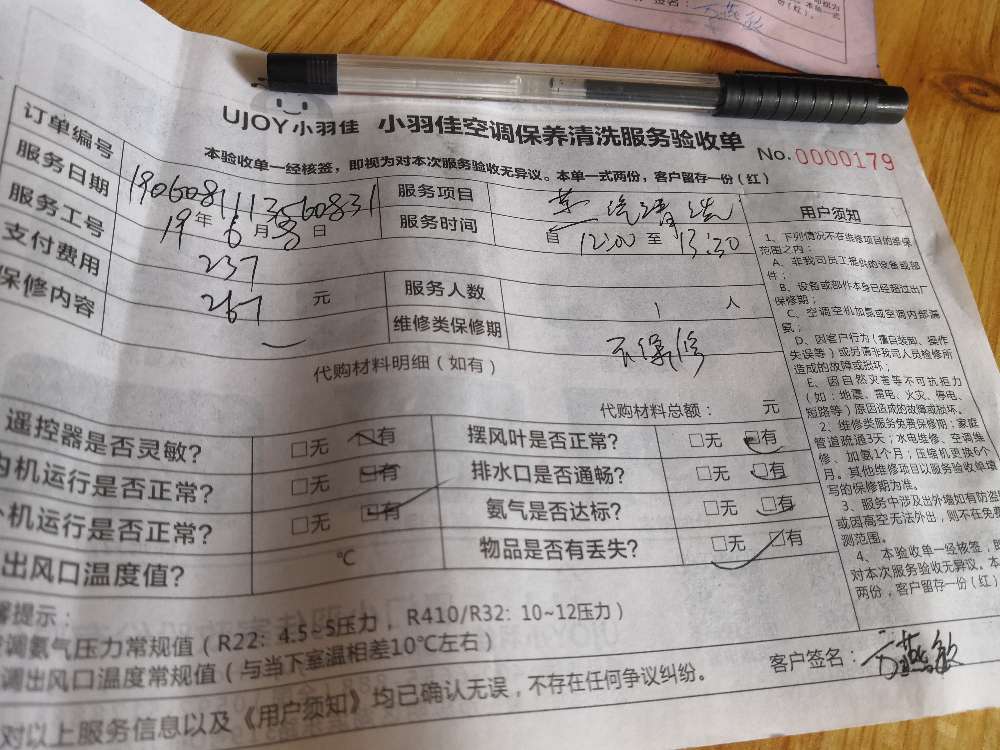 UJOY小羽佳 小羽佳空调保养清洗服务验收单
No.0000179
本验收单一经核签，即视为对本次服务验收无异议。本单一式两份，客户留存一份（红）
订单编号 1906081113560831 服务项目
服务日期 19年6月8日 服务时间 自 12:00 至 13:30
服务工号 237 服务人数 1 人
支付费用 267 元 维修类保修期 不保修
保修内容
代购材料明细（如有）
代购材料总额： 元
遥控器是否灵敏? □无 □有 摆风叶是否正常? □无 □有
内机运行是否正常? □无 □有 排水口是否通畅? □无 □有
机运行是否正常? □无 □有 氨气是否达标? □无 □有
出风口温度值? ℃ 物品是否有丢失? □无 □有
提示：
调氨气压力常规值（R22: 4.5~5压力， R410/R32: 10~12压力）
调出风口温度常规值（与当下室温相差10℃左右）
对以上服务信息以及《用户须知》均已确认无误，不存在任何争议纠纷。
客户签名：
用户须知
1、下列情况不在维修项目的维保
范围之内：
A、非我司员工提供的设备或部
件；
B、设备或部件本身已经超过出厂
保修期；
C、空调空机加氨或空调内部漏
氨；
D、因客户行为（擅自装卸、操作
失误等）或另请非我司人员检修所
造成的故障或损坏；
E、因自然灾害等不可抗拒力
（如：地震、雷电、火灾、停电、
短路等）原因造成的故障或损坏。
2、维修类服务免费保修期：家庭
管道疏通3天；水电维修、空调维
修、加氨1个月；压缩机更换6个
月。其他维修项目以服务验收单填
写的保修期为准。
3、服务中涉及出外墙如有防盗
或因高空无法外出，则不在免费
测范围。
4、本验收单一经核签，即
对本次服务验收无异议。本
两份，客户留存一份（红）